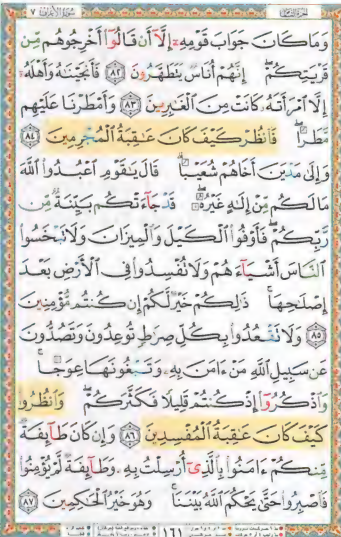 الجزء الثامن سورة الأعراف ٧
وَمَا كَانَ جَوَابَ قَوْمِهِۦٓ إِلَّآ أَن قَالُوٓا۟ أَخْرِجُوهُم مِّن
قَرْيَتِكُمْ ۖ إِنَّهُمْ أُنَاسٌ يَتَطَهَّرُونَ ٨٢ فَأَنجَيْنَٰهُ وَأَهْلَهُۥٓ
إِلَّا ٱمْرَأَتَهُۥ كَانَتْ مِنَ ٱلْغَٰبِرِينَ ٨٣ وَأَمْطَرْنَا عَلَيْهِم
مَّطَرًا ۖ فَٱنظُرْ كَيْفَ كَانَ عَٰقِبَةُ ٱلْمُجْرِمِينَ ٨٤
وَإِلَىٰ مَدْيَنَ أَخَاهُمْ شُعَيْبًا ۗ قَالَ يَٰقَوْمِ ٱعْبُدُوا۟ ٱللَّهَ
مَا لَكُم مِّنْ إِلَٰهٍ غَيْرُهُۥ ۖ قَدْ جَآءَتْكُم بَيِّنَةٌ مِّن
رَّبِّكُمْ ۖ فَأَوْفُوا۟ ٱلْكَيْلَ وَٱلْمِيزَانَ وَلَا تَبْخَسُوا۟
ٱلنَّاسَ أَشْيَآءَهُمْ وَلَا تُفْسِدُوا۟ فِى ٱلْأَرْضِ بَعْدَ
إِصْلَٰحِهَا ۚ ذَٰلِكُمْ خَيْرٌ لَّكُمْ إِن كُنتُم مُّؤْمِنِينَ
٨٥ وَلَا تَقْعُدُوا۟ بِكُلِّ صِرَٰطٍ تُوعِدُونَ وَتَصُدُّونَ
عَن سَبِيلِ ٱللَّهِ مَنْ ءَامَنَ بِهِۦ وَتَبْغُونَهَا عِوَجًا ۚ
وَٱذْكُرُوٓا۟ إِذْ كُنتُمْ قَلِيلًا فَكَثَّرَكُمْ ۖ وَٱنظُرُوا۟
كَيْفَ كَانَ عَٰقِبَةُ ٱلْمُفْسِدِينَ ٨٦ وَإِن كَانَ طَآئِفَةٌ
مِّنكُمْ ءَامَنُوا۟ بِٱلَّذِىٓ أُرْسِلْتُ بِهِۦ وَطَآئِفَةٌ لَّمْ يُؤْمِنُوا۟
فَٱصْبِرُوا۟ حَتَّىٰ يَحْكُمَ ٱللَّهُ بَيْنَنَا ۚ وَهُوَ خَيْرُ ٱلْحَٰكِمِينَ ٨٧
١٦١